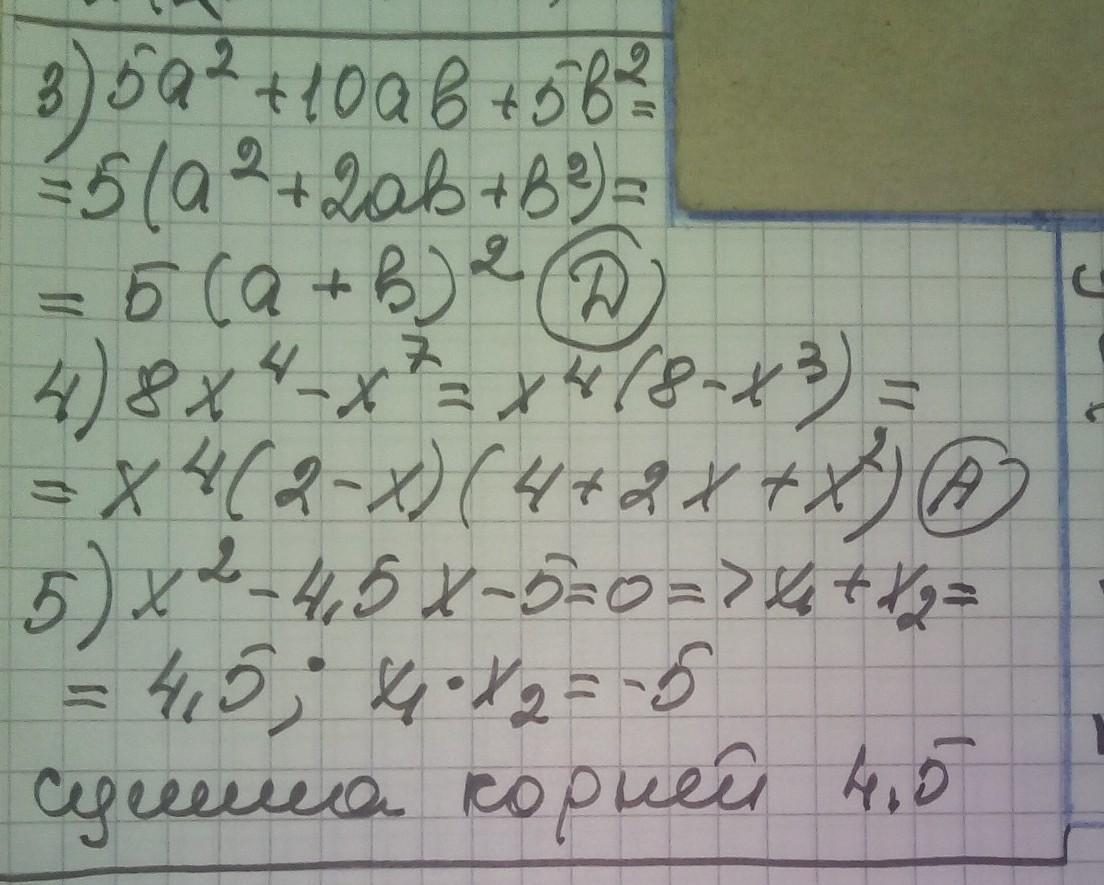 3) 5a² + 10ab + 5b² =
= 5(a² + 2ab + b²) =
= 5(a + b)² D
4) 8x⁴ - x⁷ = x⁴(8 - x³) =
= x⁴(2 - x)(4 + 2x + x²) A
5) x² - 4,5x - 5 = 0 => x₁ + x₂ =
= 4,5; x₁ · x₂ = -5
сумма корней 4,5